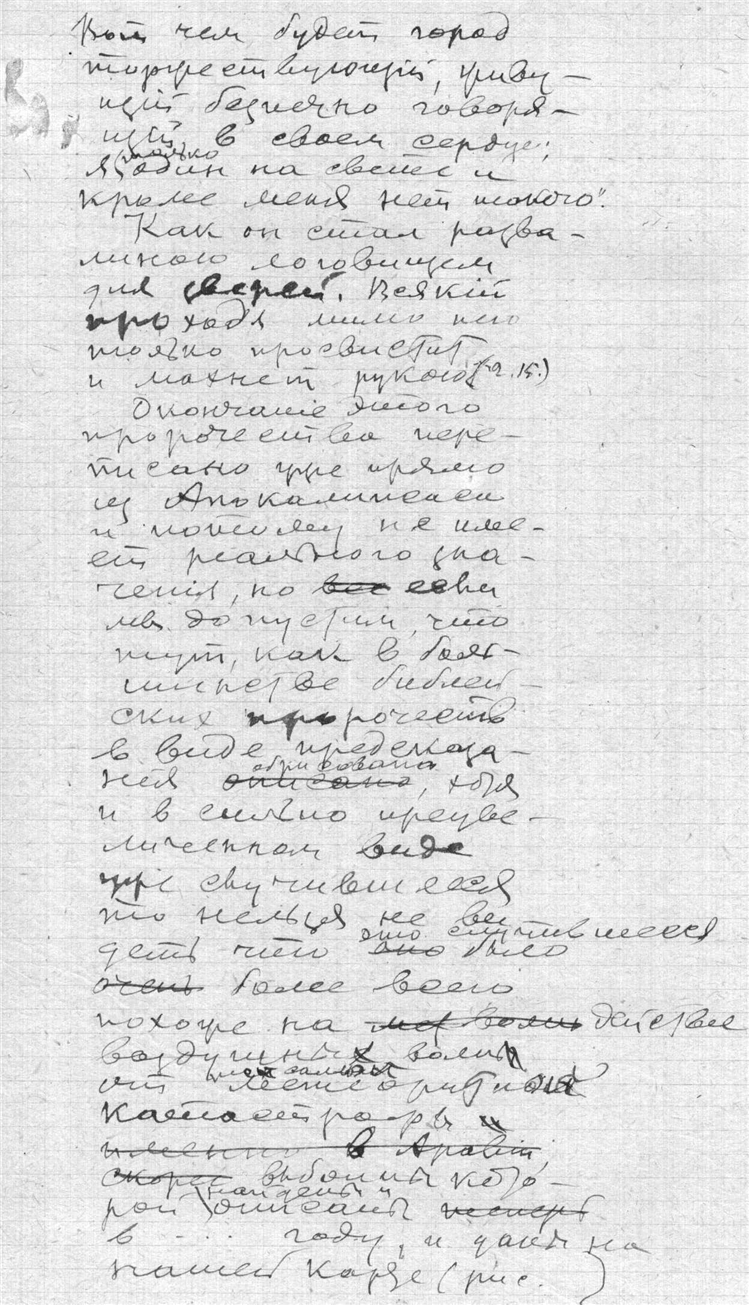 Вот чем будет город
торжествующий, живу-
щій безпечно говоря-
щій в своем сердце:
я только один на свете и
кроме меня нет такого".
Как он стал разва-
линою логовищем
для зверей. Всякій
проходя мимо него
только просвистит
и махнет рукою (2.15.)
Окончаніе этого
пророчества пере-
писано уже прямо
из Апокалипсиса
и потому не име-
ет реального зна-
ченія, но все если
мы допустим, что
тут, как в боль-
шинстве библей-
ских пророчеств
в виде предсказа-
ния описано обрисовано, хотя
и в сильно преуве-
личенном виде
уже случившееся
то нельзя не ви
деть что оно это случившееся было
очень более всего
похоже на действие
воздушных волн
от метеоритной
катастрофы и
именно в Аравіи,
скорее выбоины кото-
рой найдены и описаны теперь
в ... году, и даны на
нашей карте (рис. )